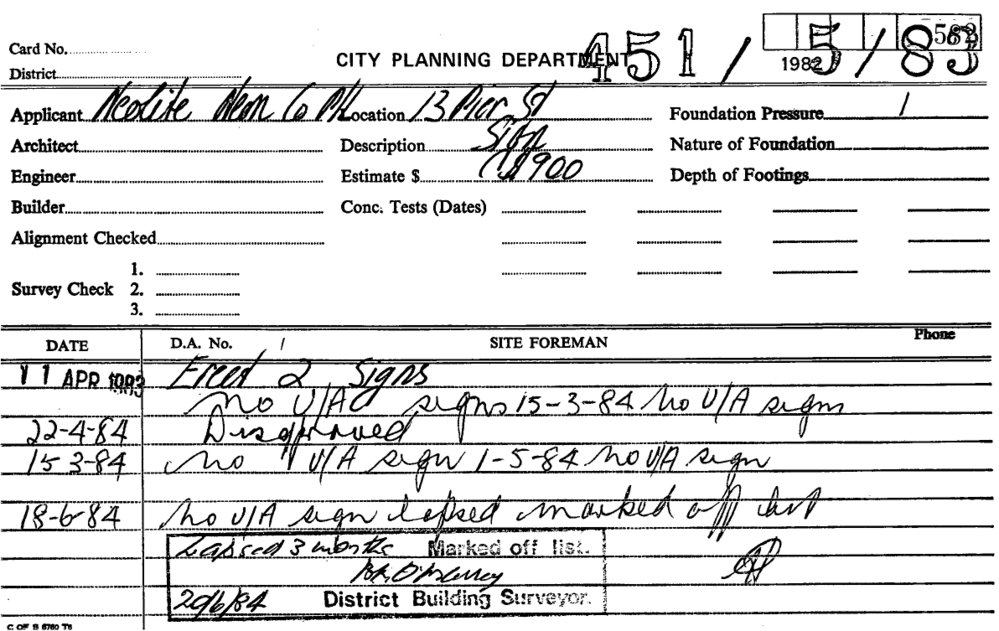 Card No.
CITY PLANNING DEPARTMENT 451/5/83
1982
District
Applicant Neolite Neon Co P/L Location 13 Pier St Foundation Pressure /
Architect Description Sign Nature of Foundation
Engineer Estimate $ $900 Depth of Footings
Builder Conc. Tests (Dates)
Alignment Checked
1.
Survey Check 2.
3.
DATE D.A. No. / SITE FOREMAN Phone
11 APR 1983 Erect 2 Signs
No U/A signs 15-3-84 No U/A signs
22-4-84 Disapproved
15-3-84 No U/A sign 1-5-84 No U/A sign
18-6-84 No U/A sign lapsed marked off list
Lapsed 3 months Marked off list.
20/6/84 District Building Surveyor.
C OF S 6760 T6